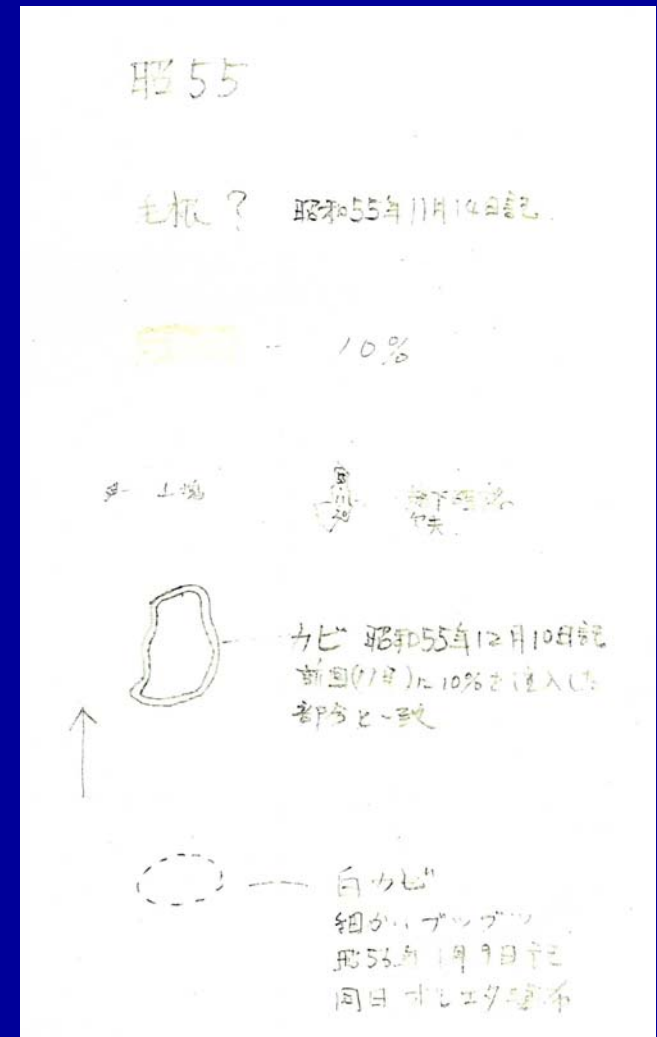 昭55
毛根? 昭和55年11月14日記
10%
土塊
カビ 昭和55年12月10日記
前回(11月)に10%を注入した
部分と一致
白カビ
細かいブツブツ
昭56年1月9日記
同日 塗布